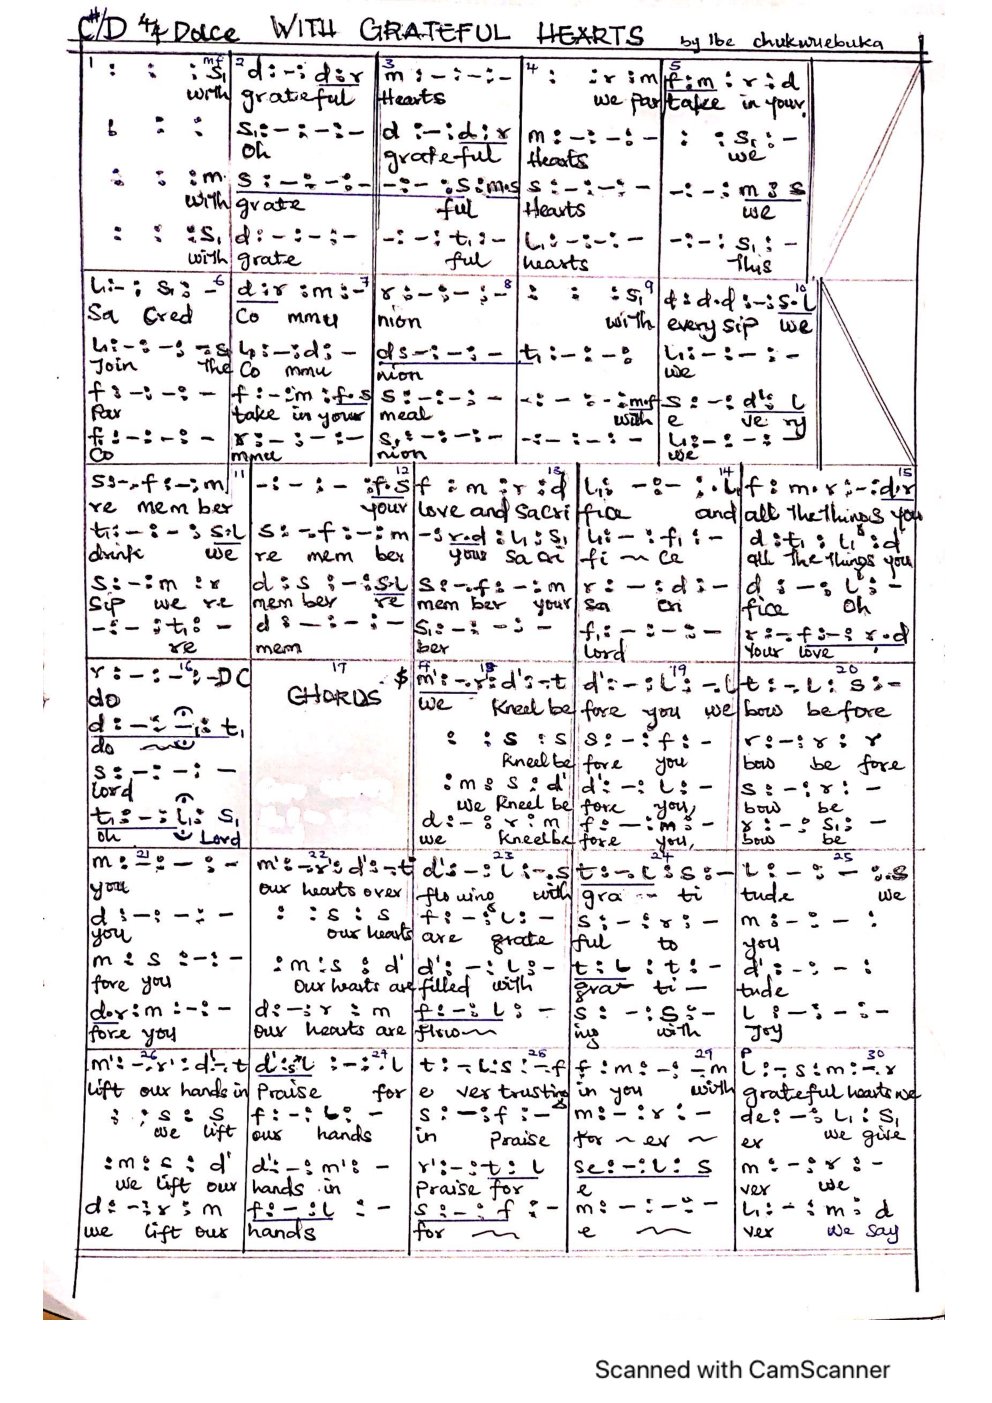 C#/D 4/4 Dolce WITH GRATEFUL HEARTS by Ibe chukwuebuka
1 : : : S₁ 2 d : - : d : r 3 m : - : - : - 4 : : r : m 5 f : m : r : d
mf
with grateful Hearts we par take in your
: : : S₁ : - : - : - d : - : d : r m : - : - : - : : S₁ : -
Oh grateful Hearts we
: : : m S : - : - : - - : - : S : m.s S : - : - : - - : - : m : s
with grate ful Hearts we
: : : S₁ d : - : - : - - : - : t₁ : - L₁ : - : - : - - : - : S₁ : -
with grate ful hearts This
L₁ : - : S₁ : - 6 d : r : m : - 7 r : - : - : - 8 : : : S₁ 9 d : d.d : - : S.L 10
Sa Cred Co mmu nion with every sip we
Join the Co mmu nion we
f : - : - : - f : - : m : f.s S : - : - : - - : - : - : m.f S : - : d' : L
Par take in your meal with e ve ry
f₁ : - : - : - r : - : - : - S₁ : - : - : - - : - : - : - L₁ : - : - : -
Co mmu nion we
S : -.f : - : m 11 - : - : - : f.s 12 f : m : r : d 13 L₁ : - : - : .L₁ 14 f : m.r : - : d.r 15
re mem ber your love and Sacri fice and all the things you
t₁ : - : - : S.L S : -.f : - : m - : r.d : L₁ : S₁ L₁ : - : f₁ : - d : t₁ : L₁ : d
drink we re mem ber your Sa cri fi ~ ce all the things you
S : - : m : r d : s : - : S.L S : -.f : - : m r : - : d : - d : - : L₁ : -
Sip we re mem ber re mem ber your sa cri fice Oh
- : - : t₁ : - d : - : - : - S₁ : - : - : - f₁ : - : - : - r : -.f : - : r.d
re mem ber lord Your love
r : - : - : - DC 16 17 $ m' : -.r' : d' : - t 18 d' : - : L : -.L 19 t : -.L : S : - 20
do CHORUS we Kneel be fore you we bow before
d : - : - : t₁ : : S : S S : - : f : - r : - : r : r
do Kneel be fore you bow be fore
S : - : - : - : m : S : d' d' : - : L : - S : - : r : -
lord we Kneel be fore you, bow be
t₁ : - : L₁ : S₁ d : - : r : m f : - : m : - r : - : S₁ : -
oh Lord we Kneel be fore you, bow be
m : - : - : - 21 m' : -.r' : d' : - t 22 d' : - : L : -.s 23 t : -.L : S : - 24 L : - : - : .S 25
you our hearts over flowing with gra - ti tude we
d : - : - : - : : S : S f : - : L : - S : - : r : - m : - : - :
you our hearts are grate ful to you
m : S : - : - : m : S : d' d' : - : L : - t : L : t : - d' : - : - :
fore you Our hearts are filled with gra ti — tude
d.r : m : - : - d : - : r : m f : - : L : - S : - : S : - L : - : - : -
fore you our hearts are flow~ ing with Joy
m' : -.r' : d' : - t 26 d' : L : - : L 27 t : -.L : S : -.f 28 f : m : - : -.m 29 P L : -.s : m : -.r 30
lift our hands in Praise for e ver trusting in you with grateful hearts we
: : S : S f : - : L : - S : - : f : - m : - : r : - de : - : L₁ : S₁
we lift our hands in Praise for ~ ev ~ er we give
: m : S : d' d' : - : m' : - r' : - : t : L se : - : L : S m : - : r : -
we lift our hands in Praise for e ver we
d : - : r : m f : - : L : - S : - : f : - m : - : - : - L₁ : - : m : d
we lift our hands for ~ e ~ ver we say
Scanned with CamScanner